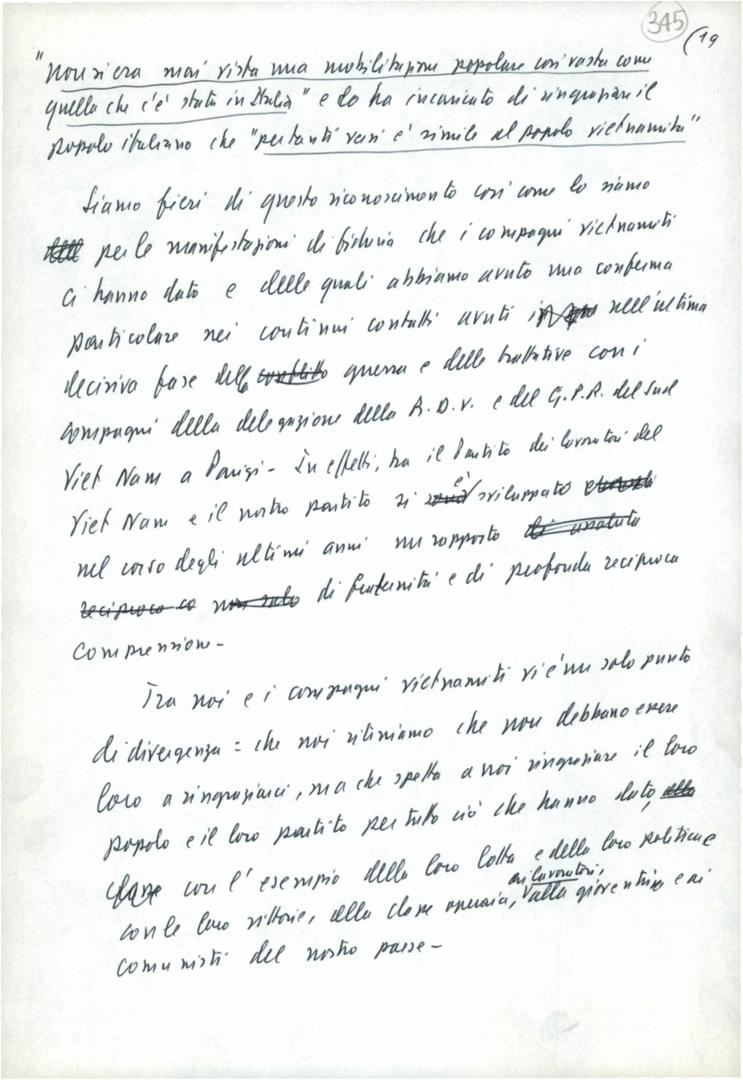 345
(19
"non si era mai vista una mobilitazione popolare così vasta come
quella che c'è stata in Italia" e lo ha incaricato di ringraziare il
popolo italiano che "per tanti versi è simile al popolo vietnamita"
Siamo fieri di questo riconoscimento così come lo siamo
per le manifestazioni di fiducia che i compagni vietnamiti
ci hanno dato e delle quali abbiamo avuto una conferma
particolare nei continui contatti avuti nell'ultima
decisiva fase della conflitto guerra e delle trattative con i
compagni della delegazione della R.D.V. e del G.P.R. del Sud
Viet Nam a Parigi - In effetti, tra il Partito dei lavoratori del
Viet Nam e il nostro partito si è sviluppato
nel corso degli ultimi anni un rapporto di assoluta
reciproca co non solo di fraternità e di profonda reciproca
comprensione -
Tra noi e i compagni vietnamiti vi è un solo punto
di divergenza = che noi riteniamo che non debbano essere
loro a ringraziarci, ma che spetta a noi ringraziare il loro
popolo e il loro partito per tutto ciò che hanno dato, alla
classe con l'esempio della loro lotta e della loro politica e
con le loro vittorie, alla classe operaia, ai lavoratori, alla gioventù e ai
comunisti del nostro paese -